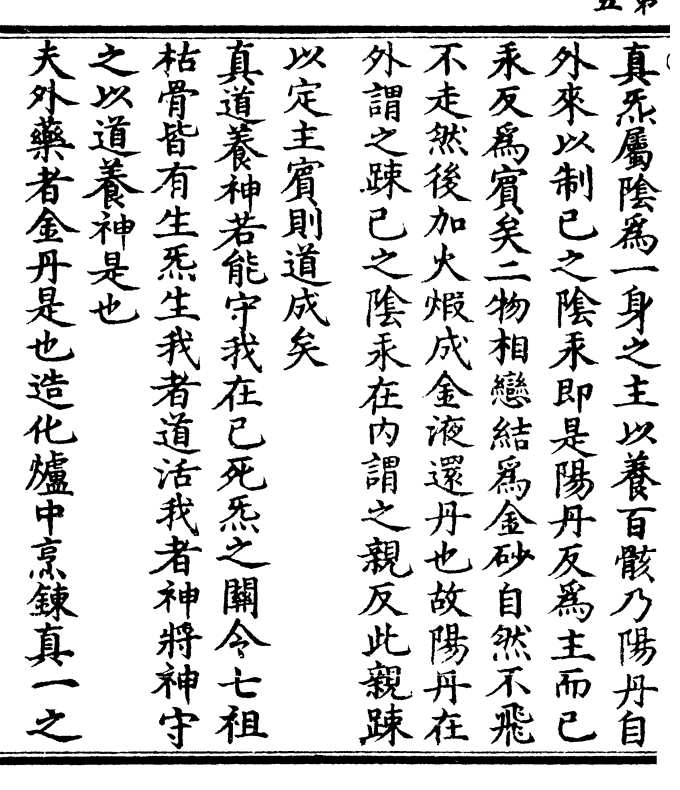 真炁屬陰爲一身之主以養百骸乃陽丹自
外來以制己之陰汞即是陽丹反爲主而己
汞反爲賓矣二物相戀結爲金砂自然不飛
不走然後加火煆成金液還丹也故陽丹在
外謂之踈己之陰汞在内謂之親反此親踈
以定主賓則道成矣
真道養神若能守我在已死炁之關令七祖
枯骨皆有生炁生我者道活我者神將神守
之以道養神是也
夫外藥者金丹是也造化爐中烹鍊真一之